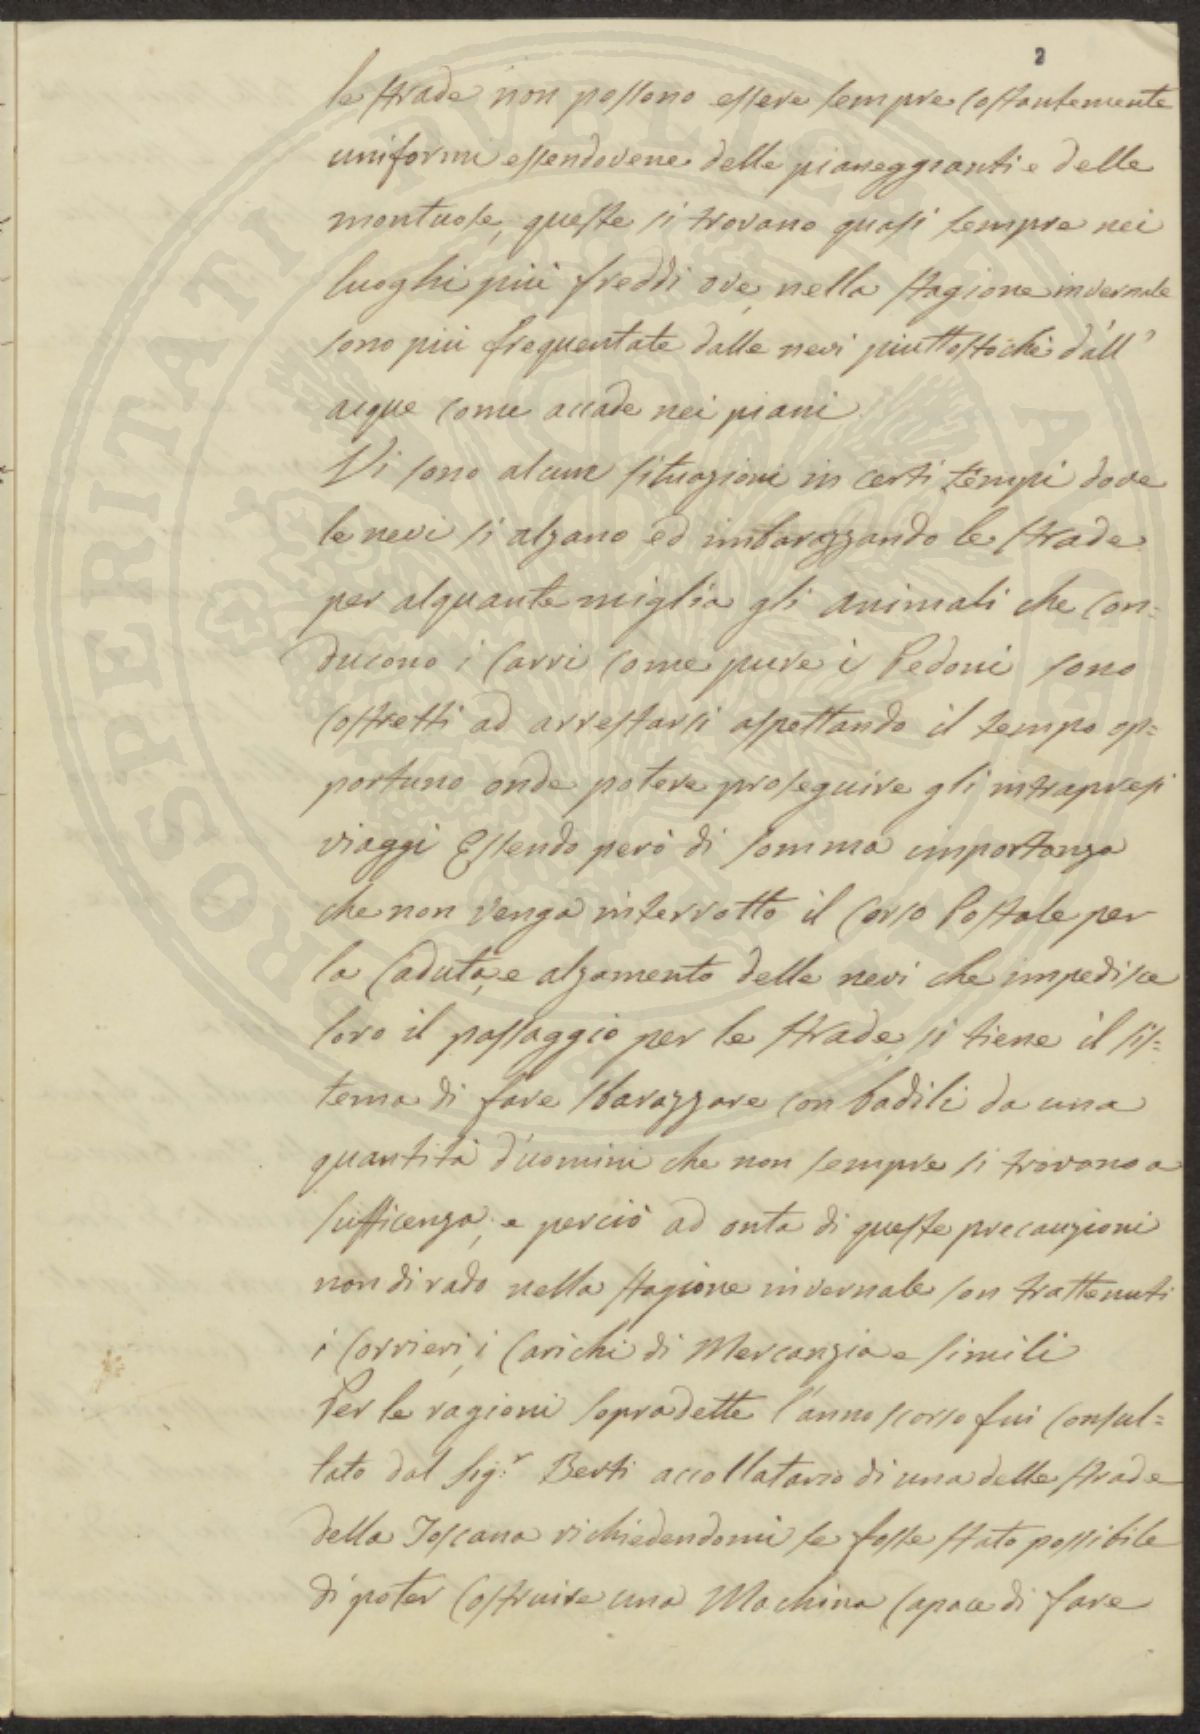 2
le strade non possono essere sempre costantemente
uniformi essendovene delle pianeggianti e delle
montuose, queste si trovano quasi sempre nei
luoghi più freddi ove, nella stagione invernale
sono più frequentate dalle nevi piuttostochè dall'
acque come accade nei piani
Vi sono alcune situazioni in certi tempi dove
le nevi si alzano ed imbarazzando le strade
per alquante miglia gli animali che con=
ducono i Carri come pure i Pedoni sono
costretti ad arrestarsi aspettando il tempo op=
portuno onde potere proseguire gli intrapresi
viaggi Essendo però di somma importanza
che non venga interrotto il Corso Postale per
la Caduta, e alzamento delle nevi che impedisce
loro il passaggio per le strade, si tiene il sis=
tema di fare sbarazzare con badili da una
quantità d'uomini che non sempre si trovono a
sufficenza, e perciò ad onta di queste precauzioni
non di rado nella stagione invernale son trattenuti
i Corrieri, i Carichi di Mercanzia e simili
Per le ragioni sopradette l'anno scorso fui consul=
tato dal Sig.r Berti accollatario di una delle strade
della Toscana richiedendomi se fosse stato possibile
di poter costruire una Machina capace di fare
PROSPERITATI PVBLICAE AVGENDAE